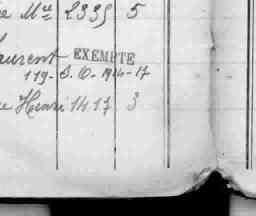 e Mce 2335 5
aurent EXEMPTE
119-S.O.-1916-17
e Henri 1417 3